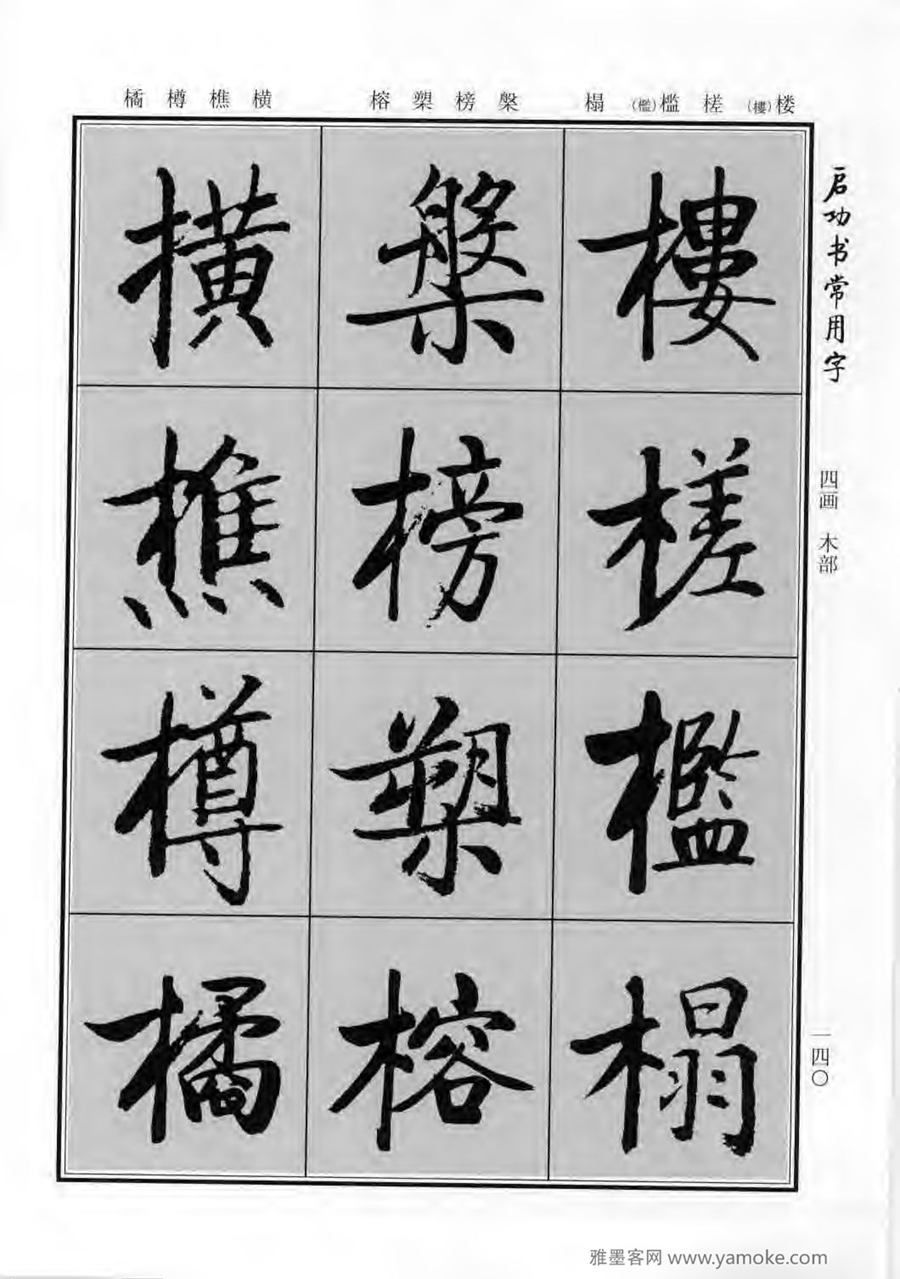 橘 樽 樵 横 榕 槊 榜 槃 榻 (檻)槛 槎 (樓)楼
启功书常用字
四画 木部
一四〇
樓
槎
檻
榻
槃
榜
槊
榕
橫
樵
樽
橘
雅墨客网 www.yamoke.com